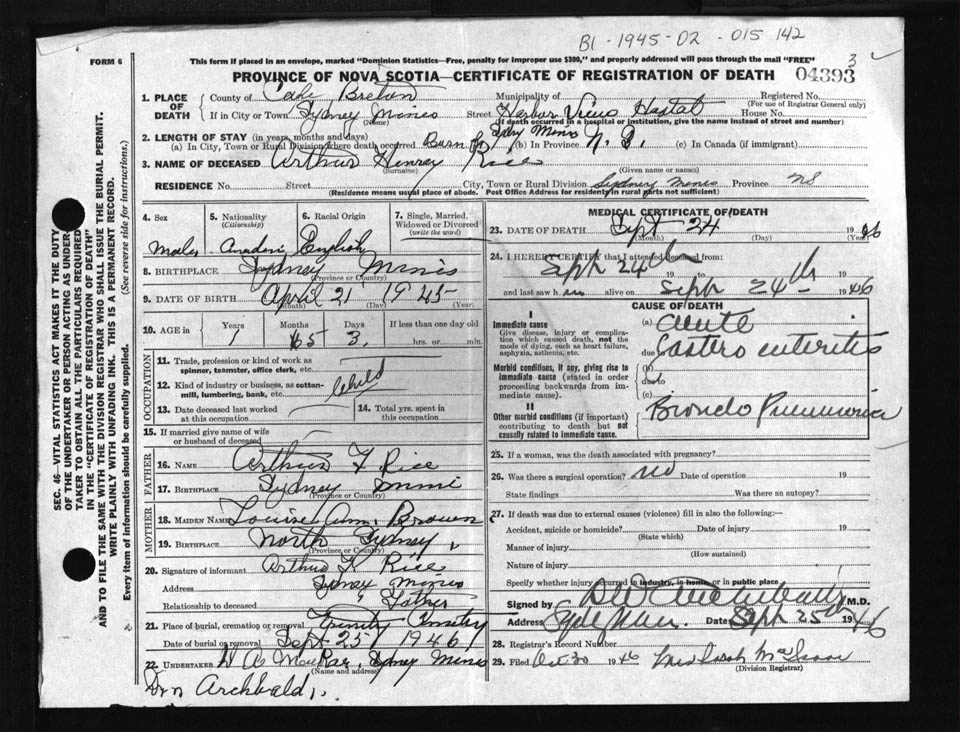 B1-1945-02-015142
FORM 6
This form if placed in an envelope, marked "Dominion Statistics—Free, penalty for improper use $300," and properly addressed will pass through the mail "FREE"
3
PROVINCE OF NOVA SCOTIA—CERTIFICATE OF REGISTRATION OF DEATH
04393
SEC. 46—VITAL STATISTICS ACT MAKES IT THE DUTY
OF THE UNDERTAKER OR PERSON ACTING AS UNDER-
TAKER TO OBTAIN ALL THE PARTICULARS REQUIRED
IN THE "CERTIFICATE OF REGISTRATION OF DEATH"
AND TO FILE THE SAME WITH THE DIVISION REGISTRAR WHO SHALL ISSUE THE BURIAL PERMIT.
WRITE PLAINLY WITH UNFADING INK. THIS IS A PERMANENT RECORD.
Every item of information should be carefully supplied. (See reverse side for instructions.)
1. PLACE OF DEATH
County of Cape Breton Municipality of Registered No.
(For use of Registrar General only)
If in City or Town Sydney Mines Street Harbor View House No.
(Name) (If death occurred in a hospital or institution, give the name instead of street and number)
2. LENGTH OF STAY (in years, months and days)
(a) In City, Town or Rural Division where death occurred Born in Sydney Mines (b) In Province N. S. (c) In Canada (if immigrant)
3. NAME OF DECEASED Arthur Rice
(Surname) (Given name or names)
RESIDENCE No. Street City, Town or Rural Division Sydney Mines Province NS
(Residence means usual place of abode. Post Office Address for residents in rural parts not sufficient)
4. Sex 5. Nationality 6. Racial Origin 7. Single, Married,
(Citizenship) Widowed or Divorced
(write the word)
Male English
8. BIRTHPLACE Sydney Mines
(Province or Country)
9. DATE OF BIRTH April 21 1945
(Month) (Day) (Year)
10. AGE in Years Months Days If less than one day old
1 5 3 hrs. or min.
OCCUPATION
11. Trade, profession or kind of work as
spinner, teamster, office clerk, etc.
12. Kind of industry or business, as cotton-
mill, lumbering, bank, etc. Child
13. Date deceased last worked 14. Total yrs. spent in
at this occupation this occupation
15. If married give name of wife
or husband of deceased
FATHER
16. NAME Arthur F Rice
17. BIRTHPLACE Sydney Mines
(Province or Country)
MOTHER
18. MAIDEN NAME Louise Ann Brown
19. BIRTHPLACE North Sydney
(Province or Country)
20. Signature of informant Arthur F. Rice
Address Sydney Mines
Relationship to deceased Father
21. Place of burial, cremation or removal Trinity Cemetery
Date of burial or removal Sept 25 1946
22. UNDERTAKER Sydney Mines
(Name and address)
Dr Archbald
MEDICAL CERTIFICATE OF DEATH
23. DATE OF DEATH Sept 24 1946
(Month) (Day) (Year)
24. I HEREBY CERTIFY that I attended deceased from:
Sept 24th 19 to
and last saw h alive on Sept 24th 1946
CAUSE OF DEATH
I
Immediate cause
Give disease, injury or complica-
tion which caused death, not the
mode of dying, such as heart failure,
asphyxia, asthenia, etc.
(a) Acute
due to Gastero enteritis
Morbid conditions, if any, giving rise to
immediate cause (stated in order
proceeding backwards from im-
mediate cause).
(b)
due to
(c)
II
Other morbid conditions (if important)
contributing to death but not
causally related to immediate cause.
Broncho Pneumonia
25. If a woman, was the death associated with pregnancy?
26. Was there a surgical operation? no Date of operation 19
State findings Was there an autopsy?
27. If death was due to external causes (violence) fill in also the following:—
Accident, suicide or homicide? Date of injury 19
(State which)
Manner of injury
(How sustained)
Nature of injury
Specify whether injury occurred in industry, in home or in public place
Signed by M.D.
Address Date Sept 25th 1946
28. Registrar's Record Number
29. Filed Oct 30 1946
(Division Registrar)